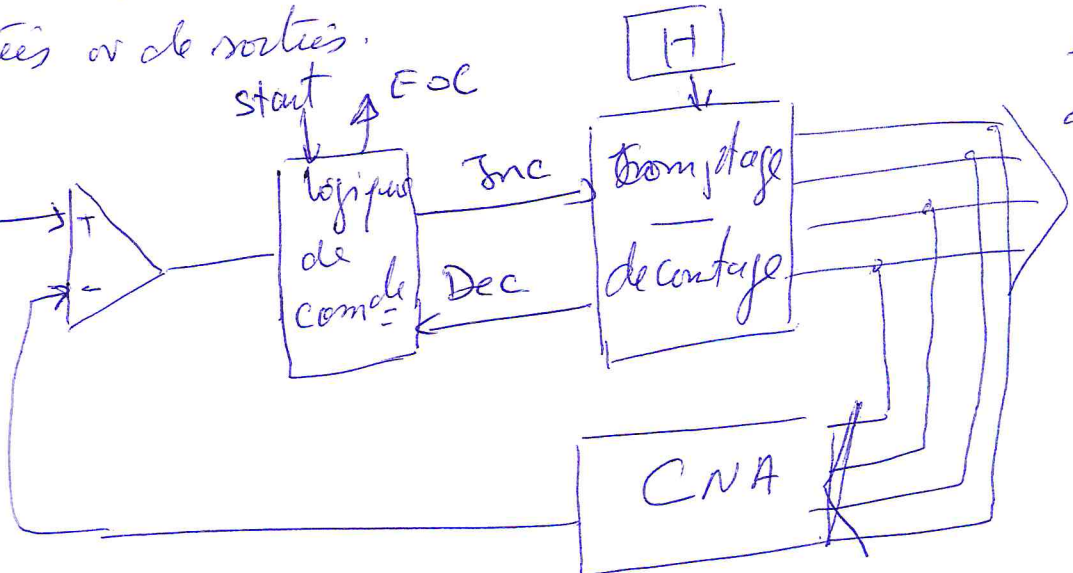 ou de sorties.
H
start
EOC
+
-
logique
de
comde
Inc
Dec
Comptage
decomptage
CNA